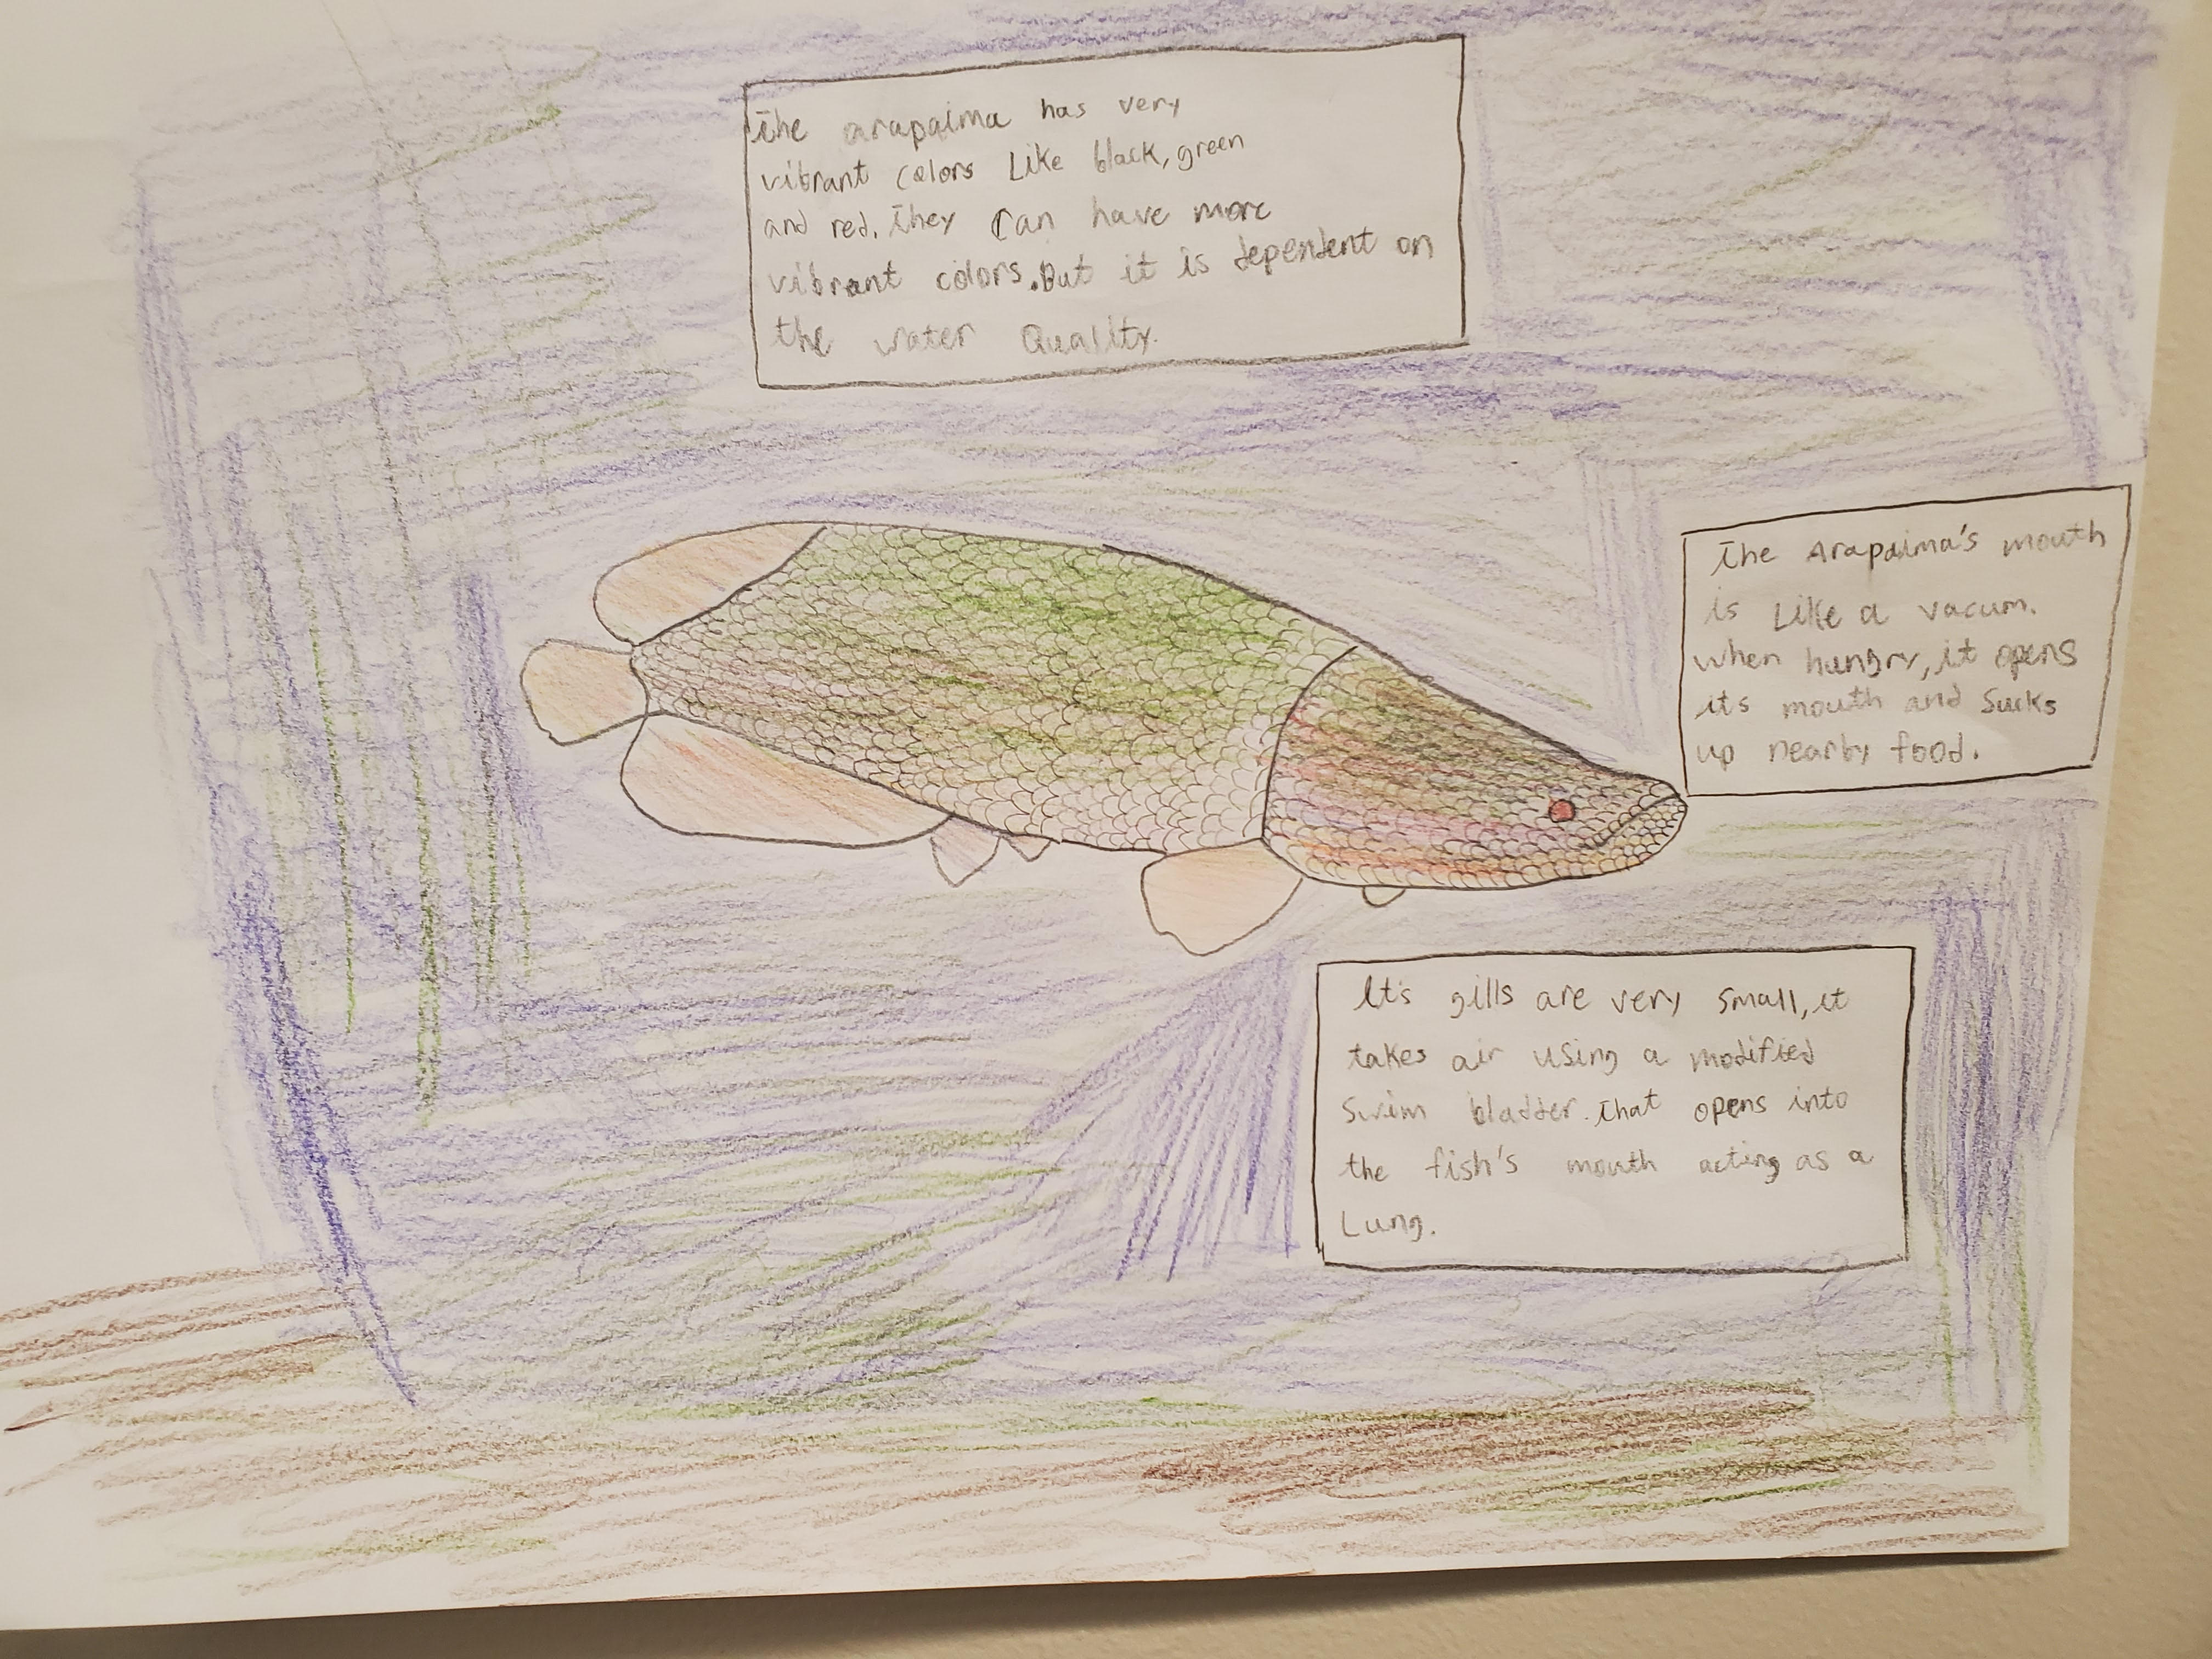 The arapaima has very
vibrant colors Like black, green
and red. They can have more
vibrant colors. But it is dependent on
the water Quality.
The Arapaima's mouth
is Like a vacum.
when hungry, it opens
its mouth and Sucks
up nearby food.
It's gills are very small, it
takes air using a modified
swim bladder. That opens into
the fish's mouth acting as a
Lung.